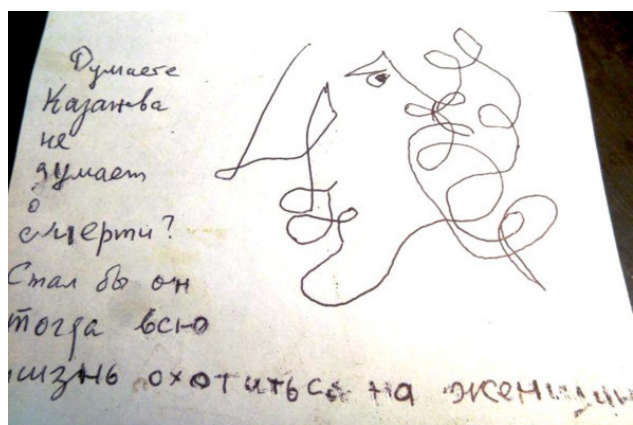 Думаете
Казанва
не
думает
о
смерти?
Стал бы он
тогда всю
жизнь охотиться на женщин